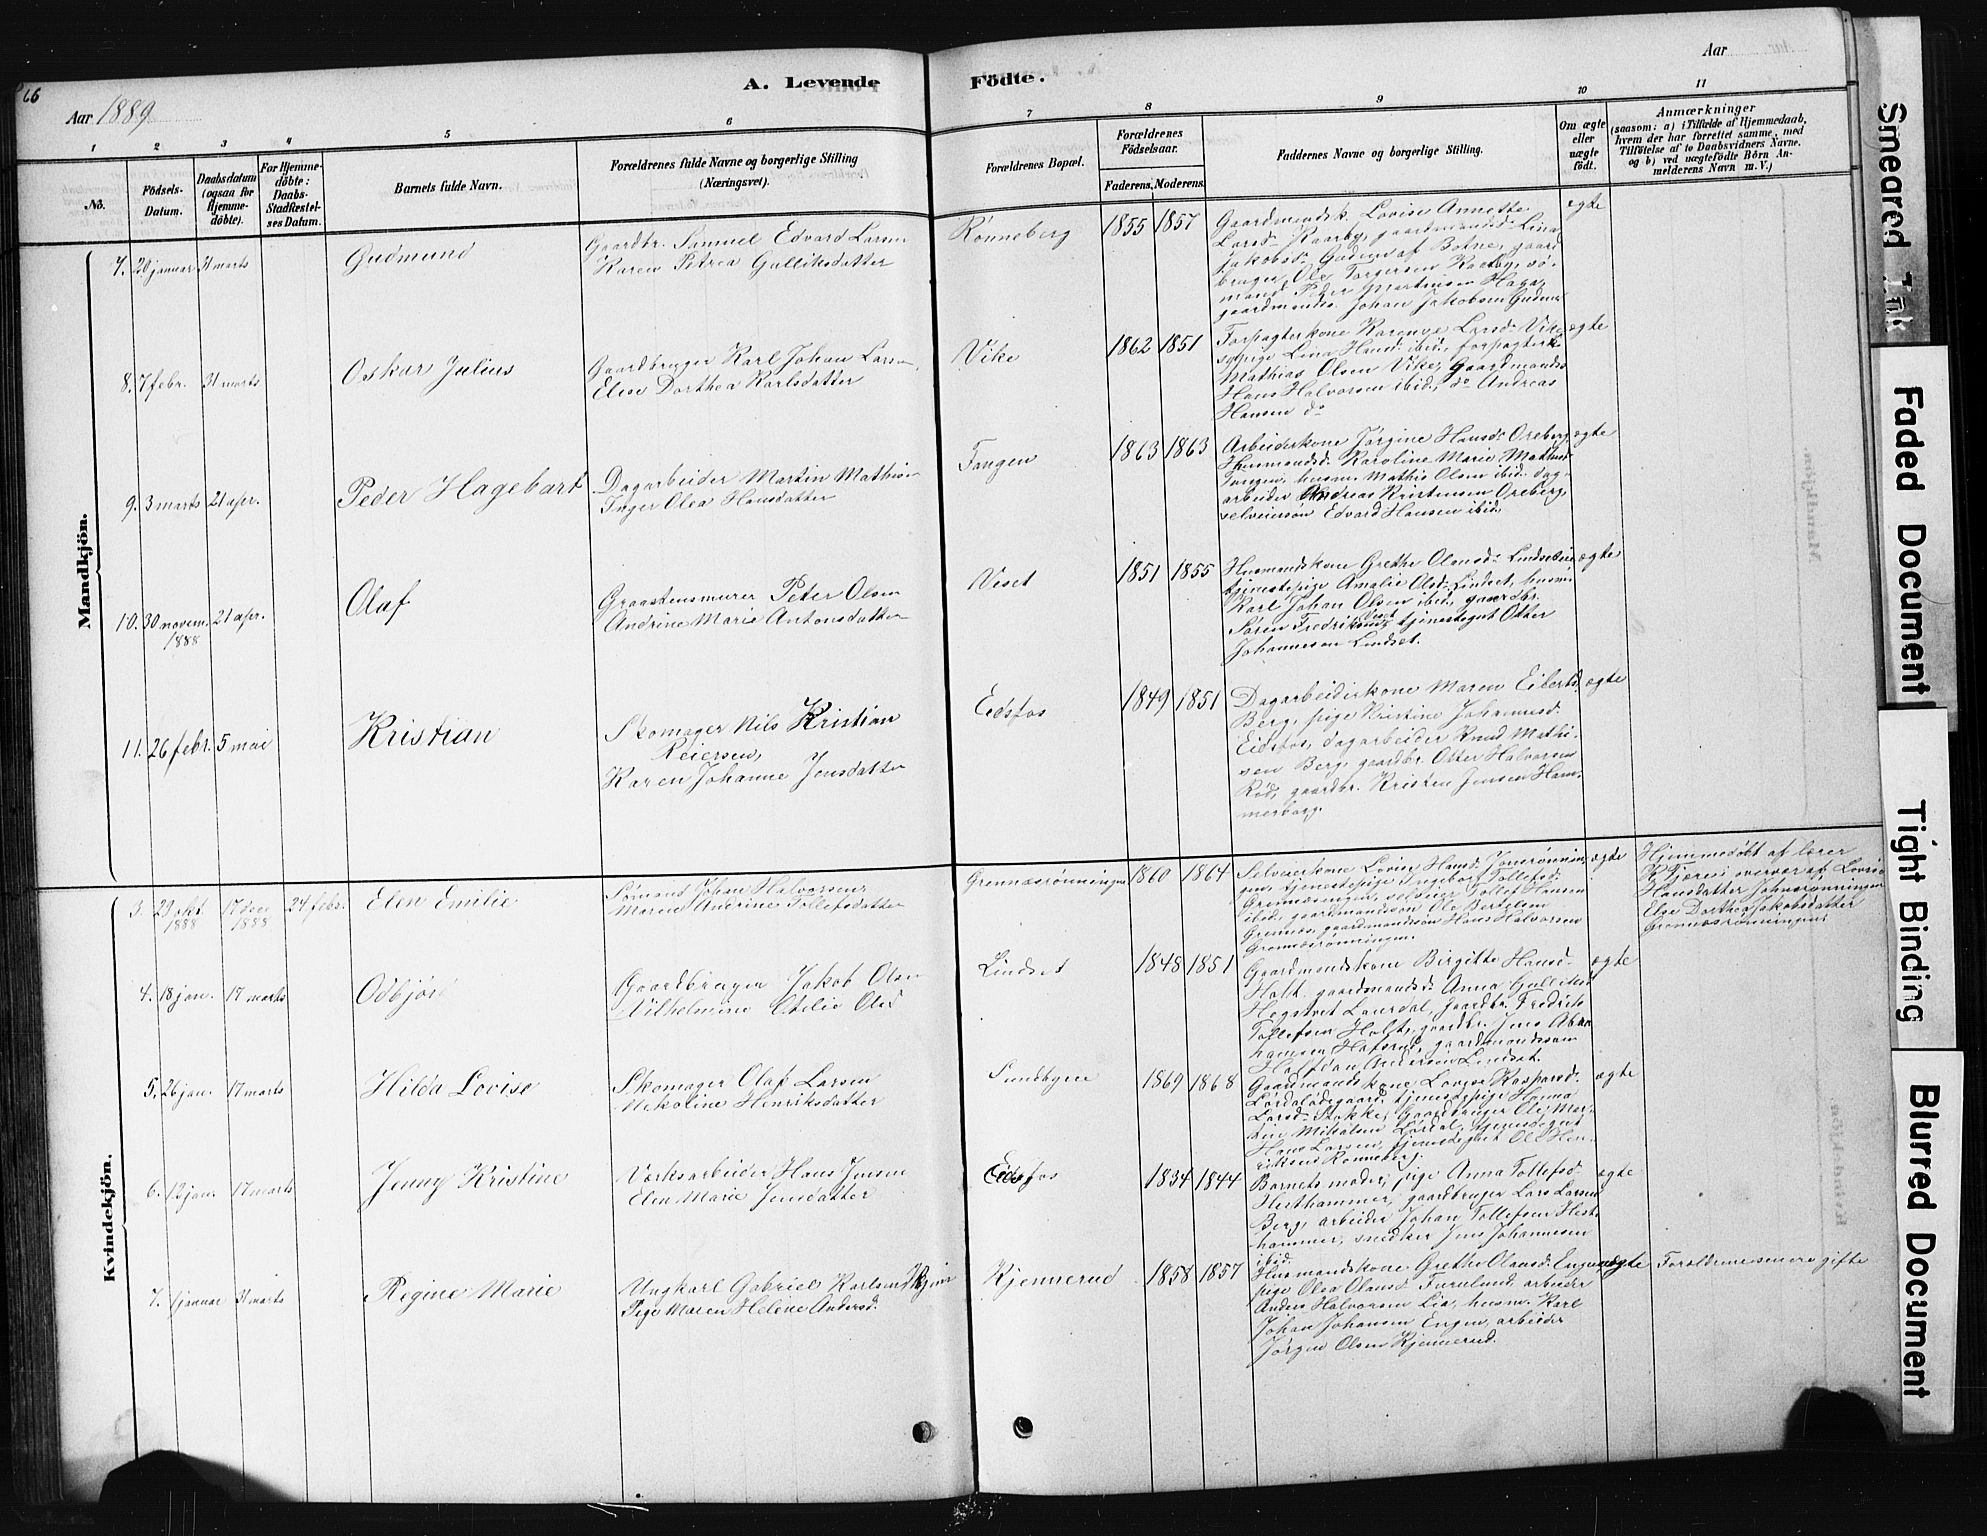 66
A. Levende
Födte.
Aar
Aar 1889
1 2 3 4 5 6 7 8 9 10 11
No.
Födsels-
Datum.
Daabsdatum
(ogsaa for
Hjemme-
döbte).
For Hjemme-
döbte:
Daabs-
Stadfæstel-
ses Datum.
Barnets fulde Navn.
Forældrenes fulde Navne og borgerlige Stilling
(Næringsvei).
Forældrenes Bopæl.
Forældrenes
Födselsaar.
Faderens. Moderens.
Faddernes Navne og borgerlige Stilling.
Om ægte
eller
uægte
födt.
Anmærkninger
(saasom: a) i Tilfælde af Hjemmedaab,
hvem der har forrettet samme, med
Tilföielse af to Daabsvidners Navne.
og b) ved uægtefödte Börn An-
melderens Navn m.V.)
Mandkjön.
7. 20 januar 31 marts
Gudmund
Gaardbr. Samuel Edvard Larsen
Karen Petrea Gulliksdatter
Rönneberg
1855 1857
Gaardmandsk. Lovise Annette
Larsd. Kaarby, gaardmandsd. Lina
Jakobsd. Gudum af Botne, gaard-
bruger Ole Torgersen Kaarby, sö-
mand Peder Martinsen Haga,
gaardmands. Johan Jakobsen Gudum
ægte
8. 7 febr. 31 marts
Oskar Julius
Gaardbruger Karl Johan Larsen,
Elise Dorthea Karlsdatter
Vike
1862 1851
Forpagterkone Larsd. Vike
sypige Lina Hansd. ibid., forpagter
Mathias Olsen Vike, Gaardmands
Hans Halvorsen ibid., do Andreas
Hansen do
ægte
9. 3 marts 21 apr.
Peder Hagebart
Dagarbeider Martin Mathisen
Inger Olea Hansdatter
Tangen
1863 1863
Arbeiderkone Jörgine Hansd. Oreberg
Husmandsd. Karoline Marie Mathisd.
Tangen, husm. Mathis Olsen ibid. dag-
arbeider Andreas Kristensen Oreberg,
selveiersön Edvard Hansen ibid.
ægte
10. 30 novem. 21 apr.
1888
Olaf
Graastensmurer Peter Olsen
Andrine Marie Antonsdatter
Veset
1851 1855
Husmandskone Grethe Olausd.
tjenestepige Amalie Olsd. Lindset, husm.
Karl Johan Olsen ibid., gaardbr.
Sören Fredriksen Veset tjenestegut Otter
Johannesen Lindset.
ægte
11. 26 febr. 5 mai
Kristian
Skomager Nils Kristian
Reiersen,
Karen Johanne Jensdatter
Eidsfos
1849 1851
Dagarbeiderkone Maren Eilertsd.
Berg, pige Kristine Johannesd.
Eidsfos, dagarbeider Knud Mathi-
sen Berg, gaardbr. Otter Halvorsen
Röd, gaardbr. Kristen Jensen Ham-
merberg.
ægte
Kvindekjön.
3. 29 okt. 17 dec. 24 febr.
1888 1888
Elen Emilie
Sömand Johan Halvorsen
Maren Andrine Tollefsdatter
Grennesrönningen
1860 1864
Selveierkone Lovise Hansd. Jonsrönnin-
gen, tjenestepige Ingeborg Tollefsd.
Grennesengen, selveier Tollef Hansen
ibid., gaardmandsön Ole Bertelsen
Grennes, gaardmandsön Hans Halvorsen
Grennesrönningen.
ægte
Hjemmedöbt af lærer
K. Fjære i overvær af Lovise
Hansdatter Johnsrönningen
Else Dorthea Jakobsdatter
Grennesrönningen
4. 18 jan. 17 marts
Odbjör
Gaardbruger Jakob Olsen
Vilhelmine Otilie Olsd.
Lindset
1848 1851
Gaardmandskone Birgitte Hansd.
Holt, gaardmandsd. Anna Gulliksd.
Hegstvet Laurdal, gaardbr. Fredrik
Tollefsen Holt, gaardbr. Jens Abra-
hamsen Hafsrud, gaardmandssön
Halfdan Andersen Lindset.
ægte
5. 26 jan. 17 marts
Hilda Lovise
Skomager Olaf Larsen
Nikoline Henriksdatter
Sundbyen
1869 1868
Gaardmandskone Lovise Kaspersd.
Lördalödegaard, tjenestepige Hanna
Larsd. Stokke, Gaardbruger Ole Mar-
tin Mikalsen Lördal, tjenestegut
Hans Larsen, tjenestegut Ole Hen-
riksen Rönneberg.
ægte
6. 12 jan. 17 marts
Jenny Kristine
Værksarbeider Hans Jensen
Elen Marie Jensdatter
Eidsfos
1834 1844
Barnets moder, pige Anna Tollefsd.
Hesthammer, gaardbruger Lars Larsen
Berg, arbeider Johan Tollefsen Hest-
hammer, snedker Jens Johannesen
ibid.
ægte
7. 1 januar 31 marts
Regine Marie
Ungkarl Gabriel Karlsen
Pige Maren Helene Andersd.
Kjennerud
1858 1857
Husmandskone Grethe Olausd. Engen
pige Olea Olausd. Furulund, arbeider
Anders Halvorsen Lia, husm. Karl
Johan Johansen Engen, arbeider
Jörgen Olsen Kjennerud.
uægte
Forældrene senere gifte
Smeared Ink
Faded Document
Tight Binding
Blurred Document